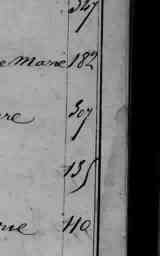 327
e Marie 182
re 307
135
ne 110